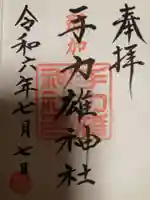 奉拝
手力雄神社
令和六年七月七日